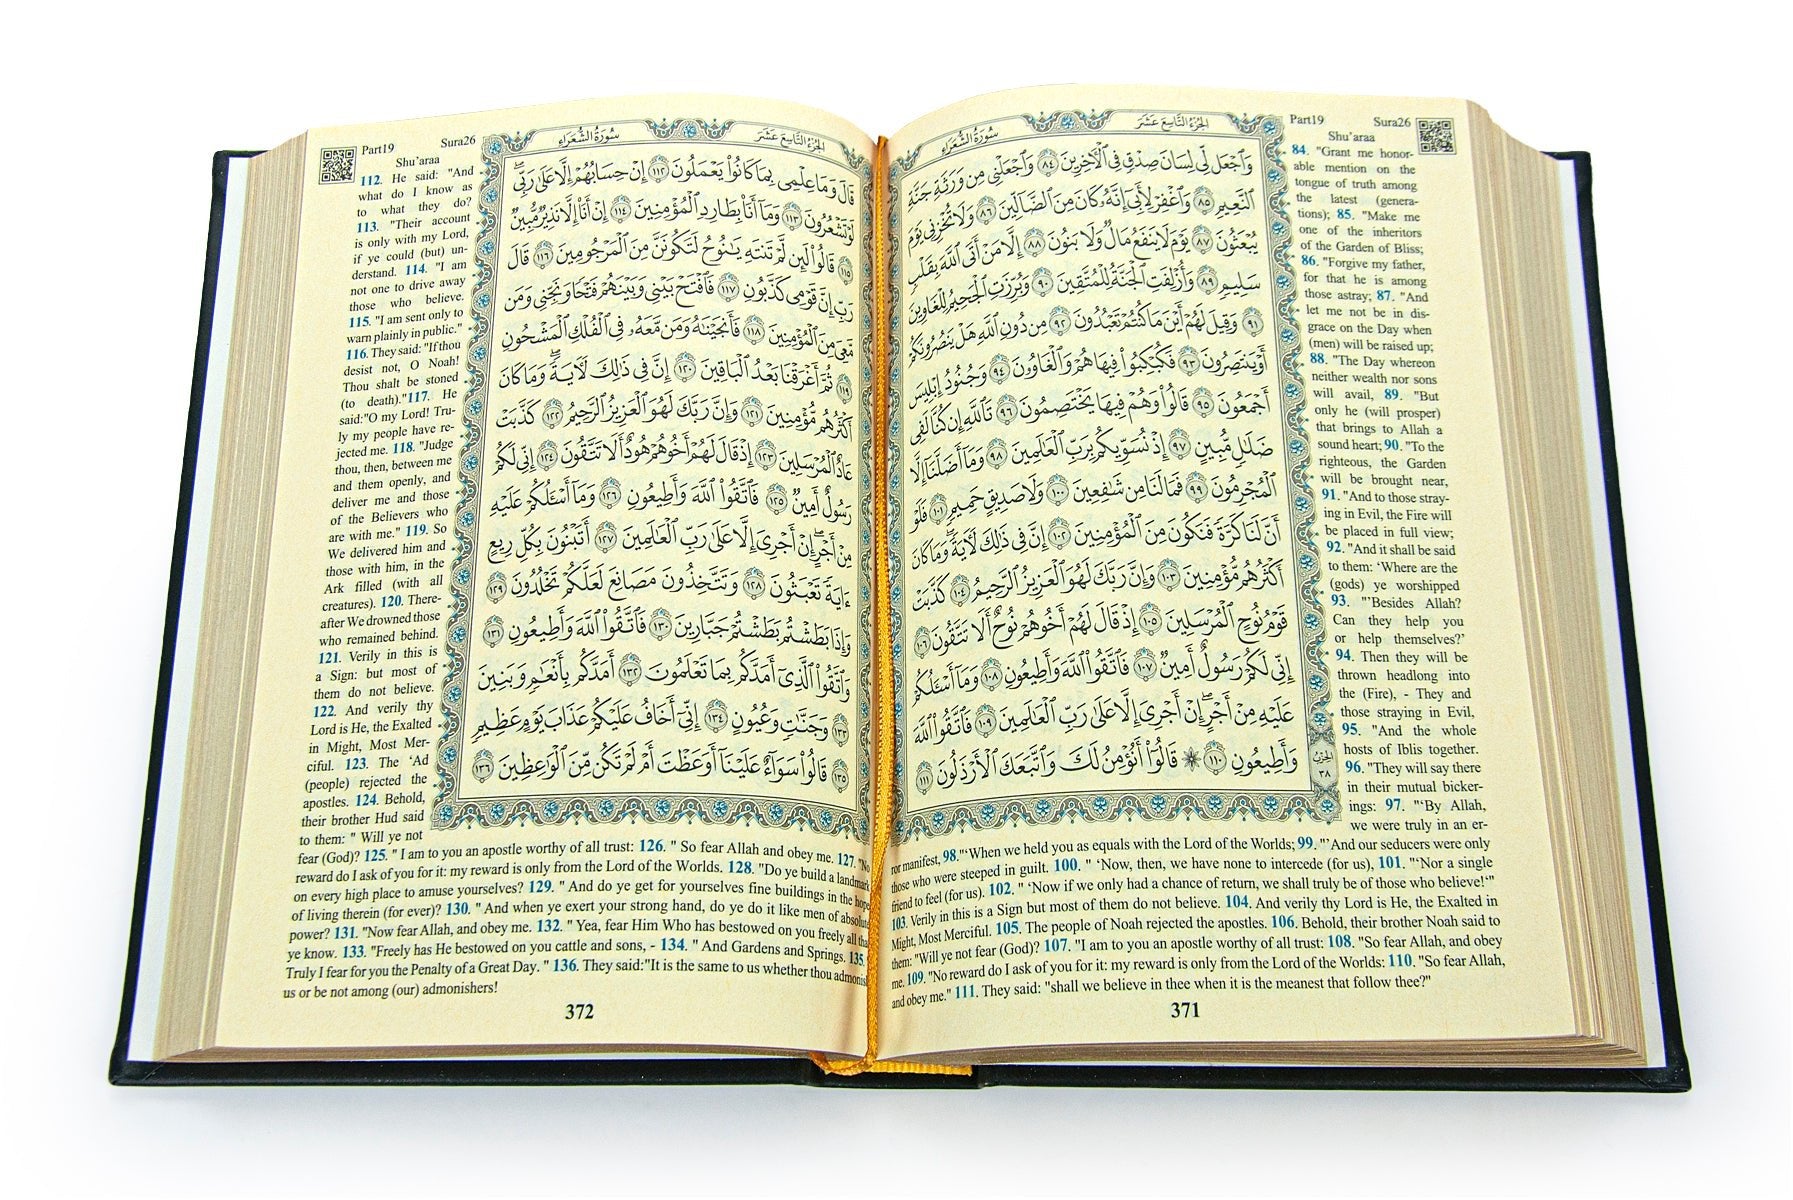 الجُزْءُ التَّاسِعَ عَشَرَ سُورَةُ الشُّعَرَاءِ
وَٱجْعَل لِّى لِسَانَ صِدْقٍ فِى ٱلْءَاخِرِينَ ٨٤ وَٱجْعَلْنِى مِن وَرَثَةِ جَنَّةِ
ٱلنَّعِيمِ ٨٥ وَٱغْفِرْ لِأَبِىٓ إِنَّهُۥ كَانَ مِنَ ٱلضَّآلِّينَ ٨٦ وَلَا تُخْزِنِى يَوْمَ
يُبْعَثُونَ ٨٧ يَوْمَ لَا يَنفَعُ مَالٌ وَلَا بَنُونَ ٨٨ إِلَّا مَنْ أَتَى ٱللَّهَ بِقَلْبٍ
سَلِيمٍ ٨٩ وَأُزْلِفَتِ ٱلْجَنَّةُ لِلْمُتَّقِينَ ٩٠ وَبُرِّزَتِ ٱلْجَحِيمُ لِلْغَاوِينَ
٩١ وَقِيلَ لَهُمْ أَيْنَ مَا كُنتُمْ تَعْبُدُونَ ٩٢ مِن دُونِ ٱللَّهِ هَلْ يَنصُرُونَكُمْ
أَوْ يَنتَصِرُونَ ٩٣ فَكُبْكِبُوا۟ فِيهَا هُمْ وَٱلْغَاوُۥنَ ٩٤ وَجُنُودُ إِبْلِيسَ
أَجْمَعُونَ ٩٥ قَالُوا۟ وَهُمْ فِيهَا يَخْتَصِمُونَ ٩٦ تَٱللَّهِ إِن كُنَّا لَفِى
ضَلَٰلٍ مُّبِينٍ ٩٧ إِذْ نُسَوِّيكُم بِرَبِّ ٱلْعَٰلَمِينَ ٩٨ وَمَآ أَضَلَّنَآ إِلَّا
ٱلْمُجْرِمُونَ ٩٩ فَمَا لَنَا مِن شَٰفِعِينَ ١٠٠ وَلَا صَدِيقٍ حَمِيمٍ ١٠١ فَلَوْ
أَنَّ لَنَا كَرَّةً فَنَكُونَ مِنَ ٱلْمُؤْمِنِينَ ١٠٢ إِنَّ فِى ذَٰلِكَ لَءَايَةً وَمَا كَانَ
أَكْثَرُهُم مُّؤْمِنِينَ ١٠٣ وَإِنَّ رَبَّكَ لَهُوَ ٱلْعَزِيزُ ٱلرَّحِيمُ ١٠٤ كَذَّبَتْ
قَوْمُ نُوحٍ ٱلْمُرْسَلِينَ ١٠٥ إِذْ قَالَ لَهُمْ أَخُوهُمْ نُوحٌ أَلَا تَتَّقُونَ ١٠٦
إِنِّى لَكُمْ رَسُولٌ أَمِينٌ ١٠٧ فَٱتَّقُوا۟ ٱللَّهَ وَأَطِيعُونِ ١٠٨ وَمَآ أَسْـَٔلُكُمْ
عَلَيْهِ مِنْ أَجْرٍ إِنْ أَجْرِىَ إِلَّا عَلَىٰ رَبِّ ٱلْعَٰلَمِينَ ١٠٩ فَٱتَّقُوا۟ ٱللَّهَ
وَأَطِيعُونِ ١١٠ ۞ قَالُوٓا۟ أَنُؤْمِنُ لَكَ وَٱتَّبَعَكَ ٱلْأَرْذَلُونَ ١١١
الحِزْبُ
٣٨
Part19 Sura26
Shu'araa
84. "Grant me honor-
able mention on the
tongue of truth among
the latest (genera-
tions); 85. "Make me
one of the inheritors
of the Garden of Bliss;
86. "Forgive my father,
for that he is among
those astray; 87. "And
let me not be in dis-
grace on the Day when
(men) will be raised up;
88. "The Day whereon
neither wealth nor sons
will avail, 89. "But
only he (will prosper)
that brings to Allah a
sound heart; 90. "To the
righteous, the Garden
will be brought near,
91. "And to those stray-
ing in Evil, the Fire will
be placed in full view;
92. "And it shall be said
to them: 'Where are the
(gods) ye worshipped
93. "'Besides Allah?
Can they help you
or help themselves?'
94. Then they will be
thrown headlong into
the (Fire), - They and
those straying in Evil,
95. "And the whole
hosts of Iblis together.
96. "They will say there
in their mutual bicker-
ings: 97. "'By Allah,
we were truly in an er-
ror manifest, 98."'When we held you as equals with the Lord of the Worlds; 99. "'And our seducers were only
those who were steeped in guilt. 100. " 'Now, then, we have none to intercede (for us), 101. "'Nor a single
friend to feel (for us). 102. " 'Now if we only had a chance of return, we shall truly be of those who believe!'"
103. Verily in this is a Sign but most of them do not believe. 104. And verily thy Lord is He, the Exalted in
Might, Most Merciful. 105. The people of Noah rejected the apostles. 106. Behold, their brother Noah said to
them: "Will ye not fear (God)? 107. "I am to you an apostle worthy of all trust: 108. "So fear Allah, and obey
me. 109. "No reward do I ask of you for it: my reward is only from the Lord of the Worlds: 110. "So fear Allah,
and obey me." 111. They said: "shall we believe in thee when it is the meanest that follow thee?"
371
الجُزْءُ التَّاسِعَ عَشَرَ سُورَةُ الشُّعَرَاءِ
قَالَ وَمَا عِلْمِى بِمَا كَانُوا۟ يَعْمَلُونَ ١١٢ إِنْ حِسَابُهُمْ إِلَّا عَلَىٰ رَبِّى
لَوْ تَشْعُرُونَ ١١٣ وَمَآ أَنَا۠ بِطَارِدِ ٱلْمُؤْمِنِينَ ١١٤ إِنْ أَنَا۠ إِلَّا نَذِيرٌ مُّبِينٌ
١١٥ قَالُوا۟ لَئِن لَّمْ تَنتَهِ يَٰنُوحُ لَتَكُونَنَّ مِنَ ٱلْمَرْجُومِينَ ١١٦ قَالَ
رَبِّ إِنَّ قَوْمِى كَذَّبُونِ ١١٧ فَٱفْتَحْ بَيْنِى وَبَيْنَهُمْ فَتْحًا وَنَجِّنِى وَمَن
مَّعِىَ مِنَ ٱلْمُؤْمِنِينَ ١١٨ فَأَنجَيْنَٰهُ وَمَن مَّعَهُۥ فِى ٱلْفُلْكِ ٱلْمَشْحُونِ
١١٩ ثُمَّ أَغْرَقْنَا بَعْدُ ٱلْبَاقِينَ ١٢٠ إِنَّ فِى ذَٰلِكَ لَءَايَةً وَمَا كَانَ
أَكْثَرُهُم مُّؤْمِنِينَ ١٢١ وَإِنَّ رَبَّكَ لَهُوَ ٱلْعَزِيزُ ٱلرَّحِيمُ ١٢٢ كَذَّبَتْ
عَادٌ ٱلْمُرْسَلِينَ ١٢٣ إِذْ قَالَ لَهُمْ أَخُوهُمْ هُودٌ أَلَا تَتَّقُونَ ١٢٤ إِنِّى لَكُمْ
رَسُولٌ أَمِينٌ ١٢٥ فَٱتَّقُوا۟ ٱللَّهَ وَأَطِيعُونِ ١٢٦ وَمَآ أَسْـَٔلُكُمْ عَلَيْهِ
مِنْ أَجْرٍ إِنْ أَجْرِىَ إِلَّا عَلَىٰ رَبِّ ٱلْعَٰلَمِينَ ١٢٧ أَتَبْنُونَ بِكُلِّ رِيعٍ
ءَايَةً تَعْبَثُونَ ١٢٨ وَتَتَّخِذُونَ مَصَانِعَ لَعَلَّكُمْ تَخْلُدُونَ ١٢٩
وَإِذَا بَطَشْتُم بَطَشْتُمْ جَبَّارِينَ ١٣٠ فَٱتَّقُوا۟ ٱللَّهَ وَأَطِيعُونِ ١٣١
وَٱتَّقُوا۟ ٱلَّذِىٓ أَمَدَّكُم بِمَا تَعْلَمُونَ ١٣٢ أَمَدَّكُم بِأَنْعَٰمٍ وَبَنِينَ
١٣٣ وَجَنَّٰتٍ وَعُيُونٍ ١٣٤ إِنِّىٓ أَخَافُ عَلَيْكُمْ عَذَابَ يَوْمٍ عَظِيمٍ
١٣٥ قَالُوا۟ سَوَآءٌ عَلَيْنَآ أَوَعَظْتَ أَمْ لَمْ تَكُن مِّنَ ٱلْوَٰعِظِينَ ١٣٦
Part19 Sura26
Shu'araa
112. He said: "And
what do I know as
to what they do?
113. "Their account
is only with my Lord,
if ye could (but) un-
derstand. 114. "I am
not one to drive away
those who believe.
115. "I am sent only to
warn plainly in public."
116. They said: "If thou
desist not, O Noah!
Thou shalt be stoned
(to death)."117. He
said:"O my Lord! Tru-
ly my people have re-
jected me. 118. "Judge
thou, then, between me
and them openly, and
deliver me and those
of the Believers who
are with me." 119. So
We delivered him and
those with him, in the
Ark filled (with all
creatures). 120. There-
after We drowned those
who remained behind.
121. Verily in this is
a Sign: but most of
them do not believe.
122. And verily thy
Lord is He, the Exalted
in Might, Most Mer-
ciful. 123. The 'Ad
(people) rejected the
apostles. 124. Behold,
their brother Hud said
to them: " Will ye not
fear (God)? 125. " I am to you an apostle worthy of all trust: 126. " So fear Allah and obey me. 127. "No
reward do I ask of you for it: my reward is only from the Lord of the Worlds. 128. "Do ye build a landmark
on every high place to amuse yourselves? 129. " And do ye get for yourselves fine buildings in the hope
of living therein (for ever)? 130. " And when ye exert your strong hand, do ye do it like men of absolute
power? 131. "Now fear Allah, and obey me. 132. " Yea, fear Him Who has bestowed on you freely all that
ye know. 133. "Freely has He bestowed on you cattle and sons, - 134. " And Gardens and Springs. 135.
Truly I fear for you the Penalty of a Great Day. " 136. They said:"It is the same to us whether thou admonish
us or be not among (our) admonishers!
372